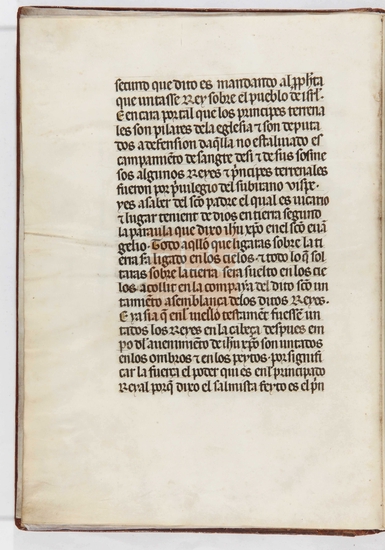 secund que dito es mandando al ppħta
que untasse Rey sobre el pueblo de isrl.
E encara por tal que los principes terrena
les son pilares dela eglesia ⁊ son deputa
dos a defension daquella no estaluado es
campamiento de sangre de si ⁊ de sus
sos algunos Reyes ⁊ principes terrenales
fueron por privilegio del subirano
yes a saber del sco padre el qual es vicario
⁊ lugar tenient de dios en tierra segund
la paraula que dixo ihu xpo en el sco euā
gelio. Todo aquello que ligaras sobre la ti
erra sra ligado en los cielos. ⁊ todo lo q̄ sol
taras sobre la tierra sera suelto en los cie
los acollir en la companya del dito sco un
tamiento a semblança delos ditos Reyes.
E ya sia q̄ en l uiello testament fuessen un
tados los Reyes en la cabeça despues em
po dl auenimiento de ihu xpo son untados
en los ombros ⁊ en los peytos. por signifi
car la fuerça el poder qui es en l principado
Reyal porq̄ dixo el salmista feyto es el prin